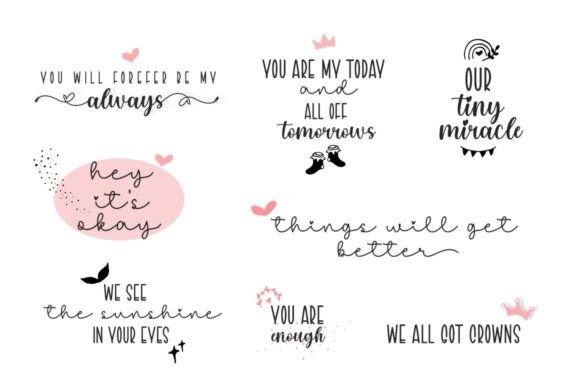 YOU WILL FOREFER BE MY
always
YOU ARE MY TODAY
and
ALL OFF
tomorrows
OUR
tiny
miracle
hey
it's
okay
things will get
better
WE SEE
the sunshine
IN YOUR EYES
YOU ARE
enough
WE ALL GOT CROWNS